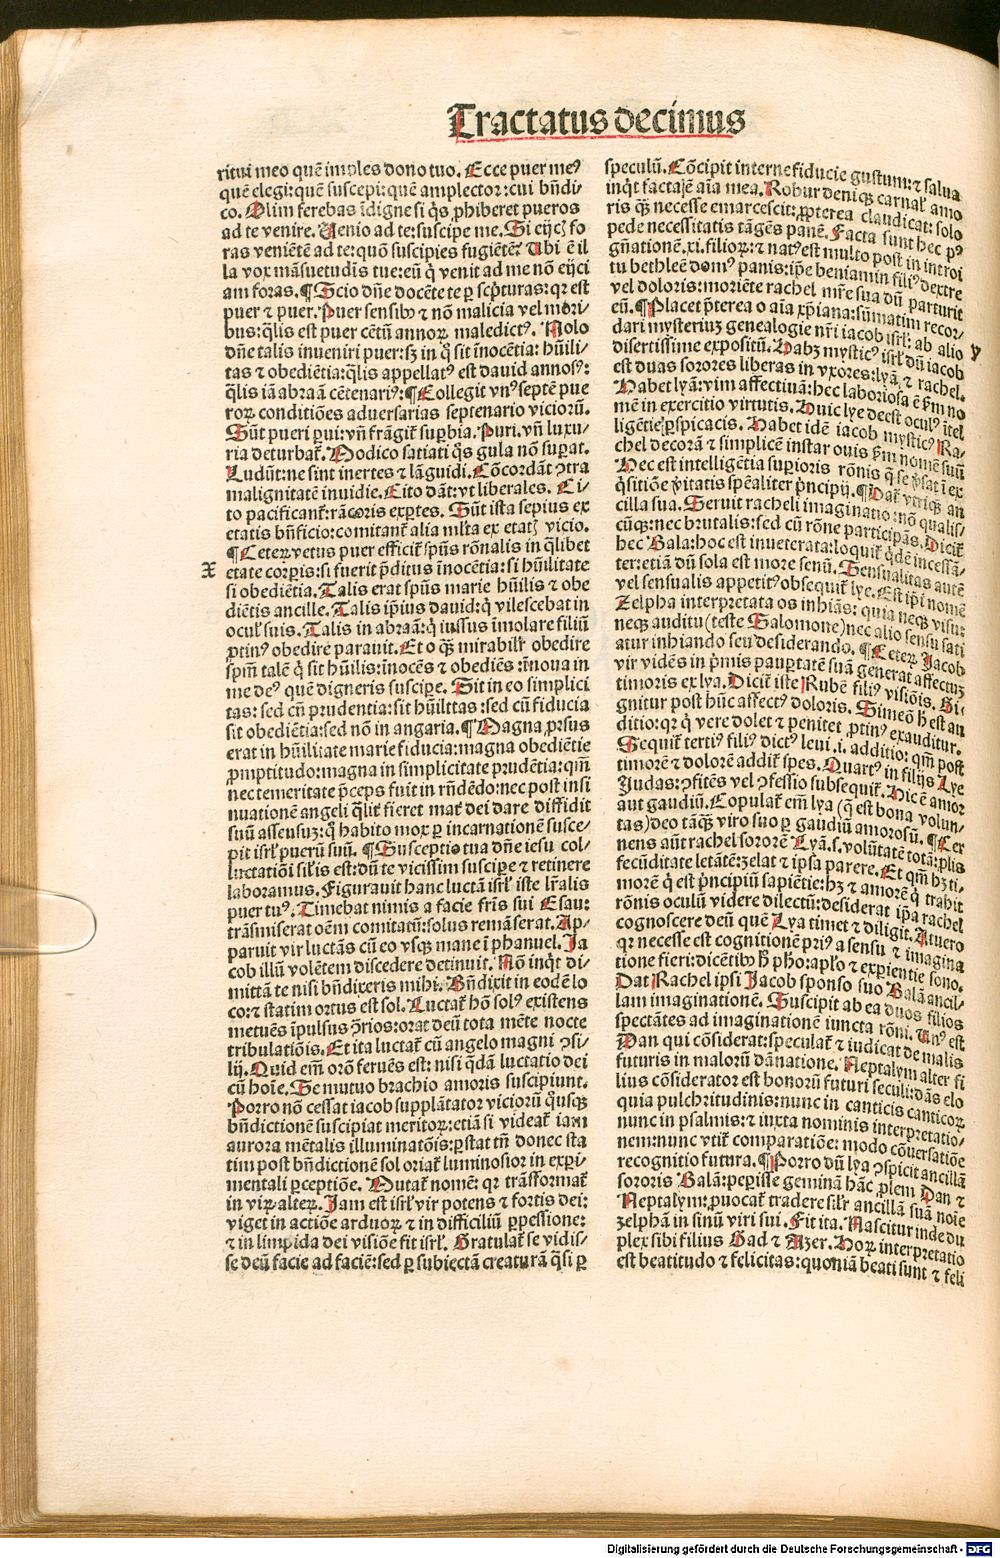 Tractatus decimus
ritui meo quē imples dono tuo. Ecce puer meꝰ
quē elegi: quē suscepi: quē amplector: cui bn̄di
co. Olim ferebas īdigne si q̇s ꝓhiberet pueros
ad te venire. Venio ad te: suscipe me. Si eijcꝫ fo
ras veniētē ad te: quō suscipies fugiētē? Ubi ē il
la vox māsuetudīs tue: eū q̇ venit ad me nō eijci
am foras. ¶ Scio dn̄e docēte te ꝑ scp̄turas: qꝛ est
puer ⁊ puer. Puer sensibꝰ ⁊ nō malicia vel mori
bus: q̄lis est puer cētū annoꝝ maledictꝰ. Nolo
dn̄e talis inueniri puer: sꝫ in q̇ sit īnocētia: hūili
tas ⁊ obediētia: q̄lis appellatꝰ est dauid annosꝰ:
q̄lis iā abraā cētenariꝰ: ¶ Collegit vnꝰ septē pue
roꝝ conditiōes aduersarias septenario vicioꝝ.
Sūt pueri ꝑui: vn̄ frāgit̄ suꝑbia. Puri. vn̄ luxu
ria deturbat̄. Modico satiati q̇s gula nō suꝑat.
Ludūt: ne sint inertes ⁊ lāguidi. Cōcordāt ꝯtra
malignitatē inuidie. Cito dāt: vt liberales. Ci
to pacificant̄: rācoris exꝑtes. Sūt ista sepius ex
etatis bn̄ficio: comitant̄ alia ml̄ta ex etatꝫ vicio.
¶ Ceteꝝ vetus puer efficit̄ sp̄us rōnalis in q̄libet
x
etate corꝑis: si fuerit p̄ditus īnocētia: si hūilitate
si obediētia. Talis erat sp̄us marie hūilis ⁊ obe
diētis ancille. Talis ip̄ius dauid: q̇ vilescebat in
ocul̄ suis. Talis in abraā: q̇ iussus īmolare filiū
ꝓtinꝰ obedire parauit. Et o qꝫ mirabilr̄ obedire
sp̄m talē q̇ sit hūilis: īnocēs ⁊ obediēs: īnoua in
me deꝰ quē digneris suscipe. Sit in eo simplici
tas: sed cū prudentia: sit hūilttas: sed cū fiducia
sit obediētia: sed nō in angaria. ¶ Magna ꝓrsus
erat in hūilitate marie fiducia: magna obediētie
ꝓmptitudo: magna in simplicitate prudētia: qm̄
nec temeritate p̄ceps fuit in rn̄dēdo: nec post insi
nuationē angeli q̄lit̄ fieret mat̄ dei dare diffidit
suū assensuꝫ: q̇ habito mox ꝑ incarnationē susce
pit isrl̄ puerū suū. ¶ Susceptio tua dn̄e iesu col/
luctatiōi sil̄is est: dū te vicissim suscipe ⁊ retinere
laboramus. Figurauit hanc luctā isrl̄ iste lr̄alis
puer tuꝰ. Timebat nimis a facie fr̄is sui Esau:
trāsmiserat oēm comitatū: solus remāserat. Ap/
paruit vir luctās cū eo vsqꝫ mane ī phanuel. Ja
cob illū volētem discedere detinuit. Nō inq̇t di/
mittā te nisi bn̄dixeris mihi. Bn̄dixit in eodē lo
co: ⁊ statim ortus est sol. Luctat̄ hō solꝰ existens
metuēs īpulsus ꝯrios: orat deū tota mēte nocte
tribulatiōis. Et ita luctat̄ cū angelo magni ꝯsi/
lij. Quid em̄ orō feruēs est: nisi q̄dā luctatio dei
cū hoīe. Se mutuo brachio amoris suscipiunt.
Porro nō cessat iacob supplātator vicioꝝ q̇usqꝫ
bn̄dictionē suscipiat meritoꝝ: etiā si videat̄ iam
aurora mētalis illuminatōis: ꝑstat tn̄ donec sta
tim post bn̄dictionē sol oriat̄ luminosior in exꝑi/
mentali ꝑceptiōe. Mutat̄ nomē: qꝛ trāsformat̄
in viꝝ alteꝝ. Jam est isrl̄ vir potens ⁊ fortis dei:
viget in actiōe arduoꝝ ⁊ in difficiliū ꝑpessione:
⁊ in limpida dei visiōe fit isrl̄. Gratulat̄ se vidis/
se deū facie ad faciē: sed ꝑ subiectā creaturā q̄si ꝑ
speculū. Cōcipit interne fiducie gustum: ⁊ salua
inq̇t facta ē aīa mea. Robur deniqꝫ carnal̄ amo
ris qꝫ necesse emarcescit: ꝓpterea claudicat: solo
pede necessitatis tāgēs panē. Facta sunt hec pꝰ
gn̄ationē .xi. filioꝝ: ⁊ natꝰ est multo post in introi
tu bethleē domꝰ panis: ip̄e beniamin filiꝰ dextre
vel doloris: moriēte rachel mr̄e sua dū parturit
eū. ¶ Placet p̄terea o aīa xp̄iana: sūmatim recor/
dari mysteriuꝫ genealogie nr̄i iacob isrl̄: ab alio
y
disertissime expositū. Habꝫ mysticꝰ isrl̄ dū iacob
est duas sorores liberas in vxores: lyā ⁊ rachel.
Habet lyā: vim affectiuā: hec laboriosa ē ẜm no
mē in exercitio virtutis. Huic lye deest oculꝰ ītel
ligētie ꝑspicacis. Habet idē iacob mysticꝰ Ra/
chel decorā ⁊ simplicē instar ouis ẜm nomē suū
Hec est intelligētia suꝑioris rōnis q̄ se v̓sat ī ex
q̇sitiōe v̓itatis spēaliter p̄ncipij. ¶ Dat̄ vtriqꝫ an
cilla sua. Seruit racheli imaginatio: nō qualis/
cūqꝫ: nec brutalis: sed cū rōne participās. Dicit̄
hec Bala: hoc est inueterata: loquit̄ q̇dē incessā/
ter: etiā dū sola est more senū. Sensualitas autē
vel sensualis appetitꝰ obsequit̄ lye. Est ip̄i nomē
Zelpha interpretata os inhiās: quia neqꝫ visu:
neqꝫ auditu (teste Salomone) nec alio sensu sati
atur inhiando seu desiderando. ¶ Ceteꝝ Jacob
vir vidēs in p̄mis pauꝑtatē suā generat affectuꝫ
timoris ex lya. Dicit̄ iste Rubē filiꝰ visiōis. Gi/
gnitur post hūc affectꝰ doloris. Simeō ħ est au
ditio: qꝛ q̇ vere dolet ⁊ penitet ꝓtinꝰ exauditur.
Sequit̄ tertiꝰ filiꝰ dictꝰ leui .i. additio: qm̄ post
timorē ⁊ dolorē addit̄ spes. Quartꝰ in filijs Lye
Judas: ꝯfitēs vel ꝯfessio subsequit̄. Hic ē amor
aut gaudiū. Copulat̄ em̄ lya (q̄ est bona volun/
tas) deo tāqꝫ viro suo ꝑ gaudiū amorosū. ¶ Cer
nens aūt rachel sororē Lyā .s. volūtatē totā: ꝓlis
fecūditate letātē: zelat ⁊ ipsa parere. Et qm̄ hꝫ ti/
morē q̇ est p̄ncipiū sapiētie: hꝫ ⁊ amorē q̇ trahit
rōnis oculū videre dilectū: desiderat ip̄a rachel
cognoscere deū quē Lya timet ⁊ diligit. At vero
qꝛ necesse est cognitionē priꝰ a sensu ⁊ imagina
tione fieri: dicētibꝰ ħ pho: apl̄o ⁊ exꝑientie sono.
Dat Rachel ipsi Jacob sponso suo Balā ancil/
lam imaginationē. Suscipit ab ea duos filios
spectātes ad imaginationē iuncta rōni. Unꝰ est
Dan qui cōsiderat: speculat̄ ⁊ iudicat de malis
futuris in maloꝝ dānatione. Neptalym alter fi
lius cōsiderator est bonoꝝ futuri seculi: dās elo
quia pulchritudinis: nunc in canticis canticoꝝ
nunc in psalmis: ⁊ iuxta nominis interpretatio/
nem: nunc vtit̄ comparatiōe: modo cōuersatiōe
recognitio futura. ¶ Porro dū lya ꝯspicit ancillā
sororis Balā: peperisse geminā hāc ꝓlem Dan ⁊
Neptalym: ꝓuocat̄ tradere silr̄ ancillā suā noīe
zelphā in sinū viri sui. Fit ita. Nascitur inde du
plex sibi filius Gad ⁊ Azer. Hoꝝ interpretatio
est beatitudo ⁊ felicitas: quoniā beati sunt ⁊ feli
Digitalisierung gefördert durch die Deutsche Forschungsgemeinschaft - DFG